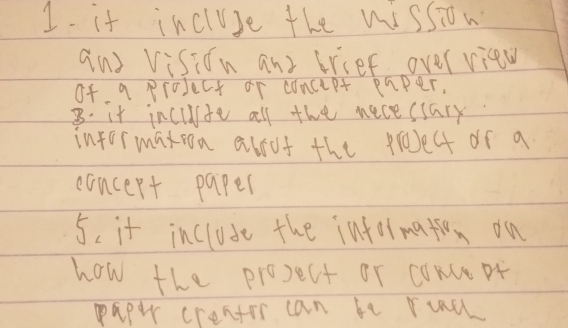 1. it include the mission
and vision and brief over view
of a project or concept paper.
3. it include all the necessary
information about the project or a
concept paper
5. it include the information on
how the project or concept
paper creator can be reach